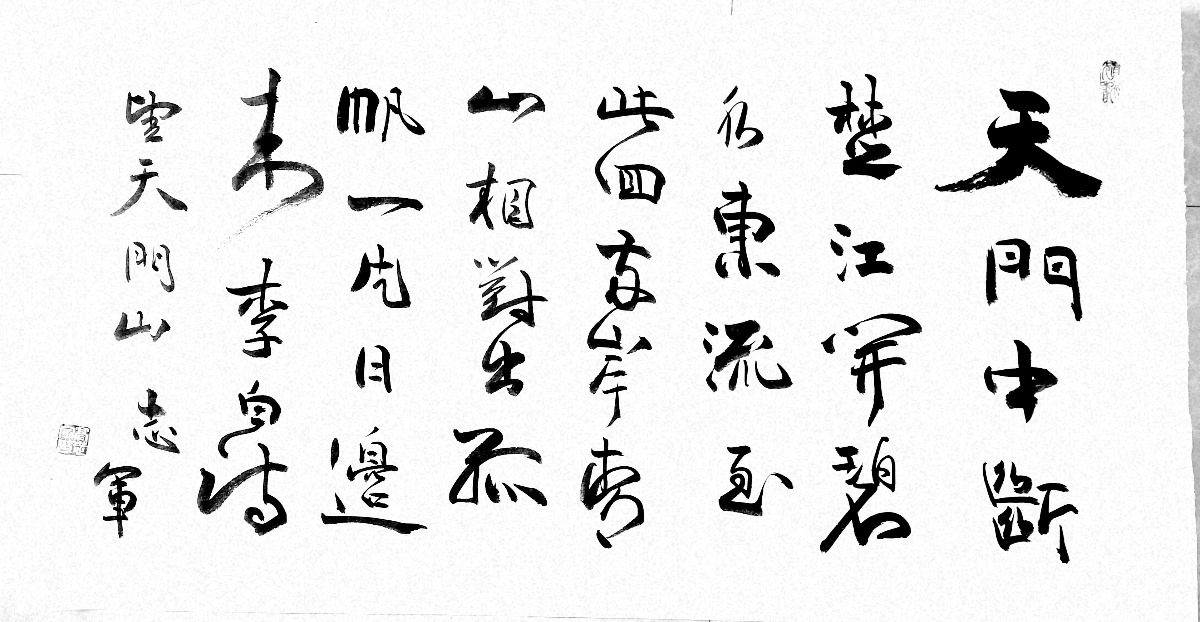 天門中斷
楚江開碧
水東流至
此回兩岸青
山相對出孤
帆一片日邊
来 李白詩
望天門山 志軍